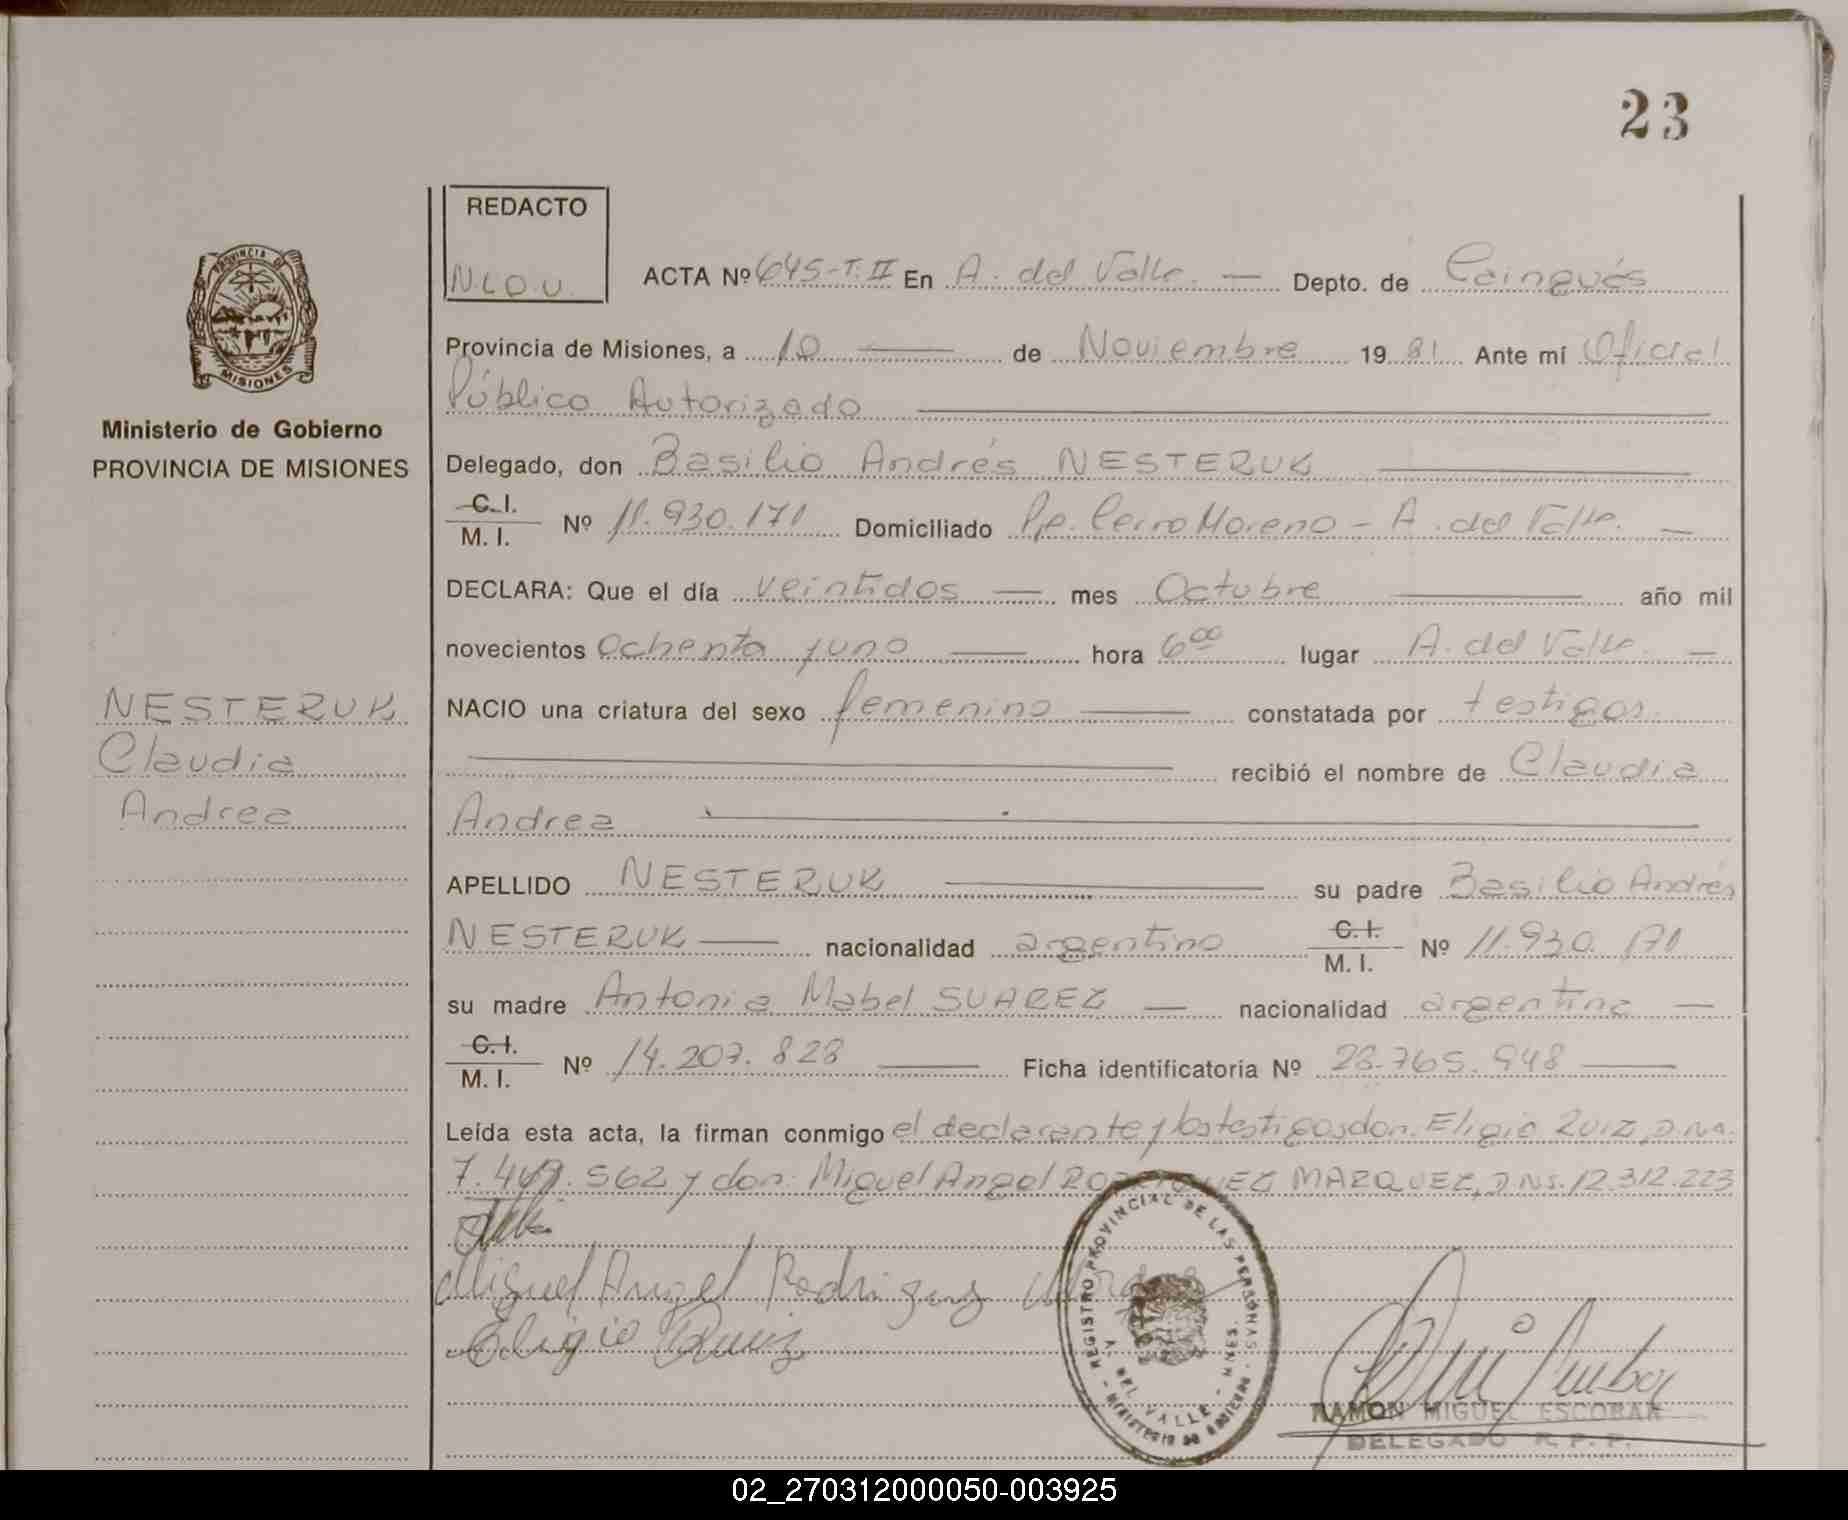 23
REDACTO
N.L.D.U.
ACTA Nº 645-T.II En A. del Valle. — Depto. de Cainguás
Provincia de Misiones, a 10 — de Noviembre 1981 Ante mí Oficial
Público Autorizado
Delegado, don Basilio Andrés NESTERUK
C.I.
M.I. Nº 11.930.171 Domiciliado Pje. Cerro Moreno - A. del Valle. —
DECLARA: Que el día veintidos — mes Octubre — año mil
novecientos ochenta y uno — hora 6⁰⁰ lugar A. del Valle. —
NACIO una criatura del sexo femenino — constatada por testigos.
recibió el nombre de Claudia
Andrea
APELLIDO NESTERUK — su padre Basilio Andrés
NESTERUK — nacionalidad argentino C.I. M.I. Nº 11.930.171
su madre Antonia Mabel SUAREZ — nacionalidad argentina —
C.I.
M.I. Nº 14.207.828 — Ficha identificatoria Nº 28.765.948 —
Leída esta acta, la firman conmigo el declarante y los testigos don. Eligio RUIZ, D.N.
562 y don. Miguel Angel RODRIGUEZ MARQUEZ, D.N. 12.312.223
Miguel Angel Rodriguez
Eligio Ruiz
PROVINCIA DE
MISIONES
Ministerio de Gobierno
PROVINCIA DE MISIONES
NESTERUK
Claudia
Andrea
REGISTRO PROVINCIAL DE LAS PERSONAS
A. DEL VALLE - MNES.
MINISTERIO DE GOBIERNO
RAMON MIGUEL ESCOBAR
DELEGADO R. P. P.
02_270312000050-003925